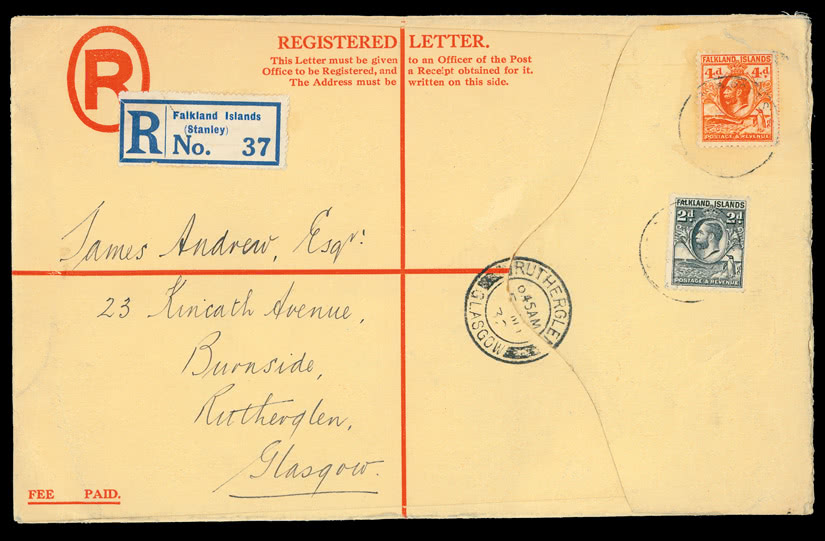 R
REGISTERED LETTER.
This Letter must be given to an Officer of the Post
Office to be Registered, and a Receipt obtained for it.
The Address must be written on this side.
R
Falkland Islands
(Stanley)
No. 37
FALKLAND ISLANDS
4d 4d
POSTAGE & REVENUE
FALKLAND ISLANDS
2d 2d
POSTAGE & REVENUE
James Andrew, Esqr:
23 Kincath Avenue,
Burnside,
Rutherglen,
Glasgow.
RUTHERGLEN
945AM
GLASGOW
FEE PAID.